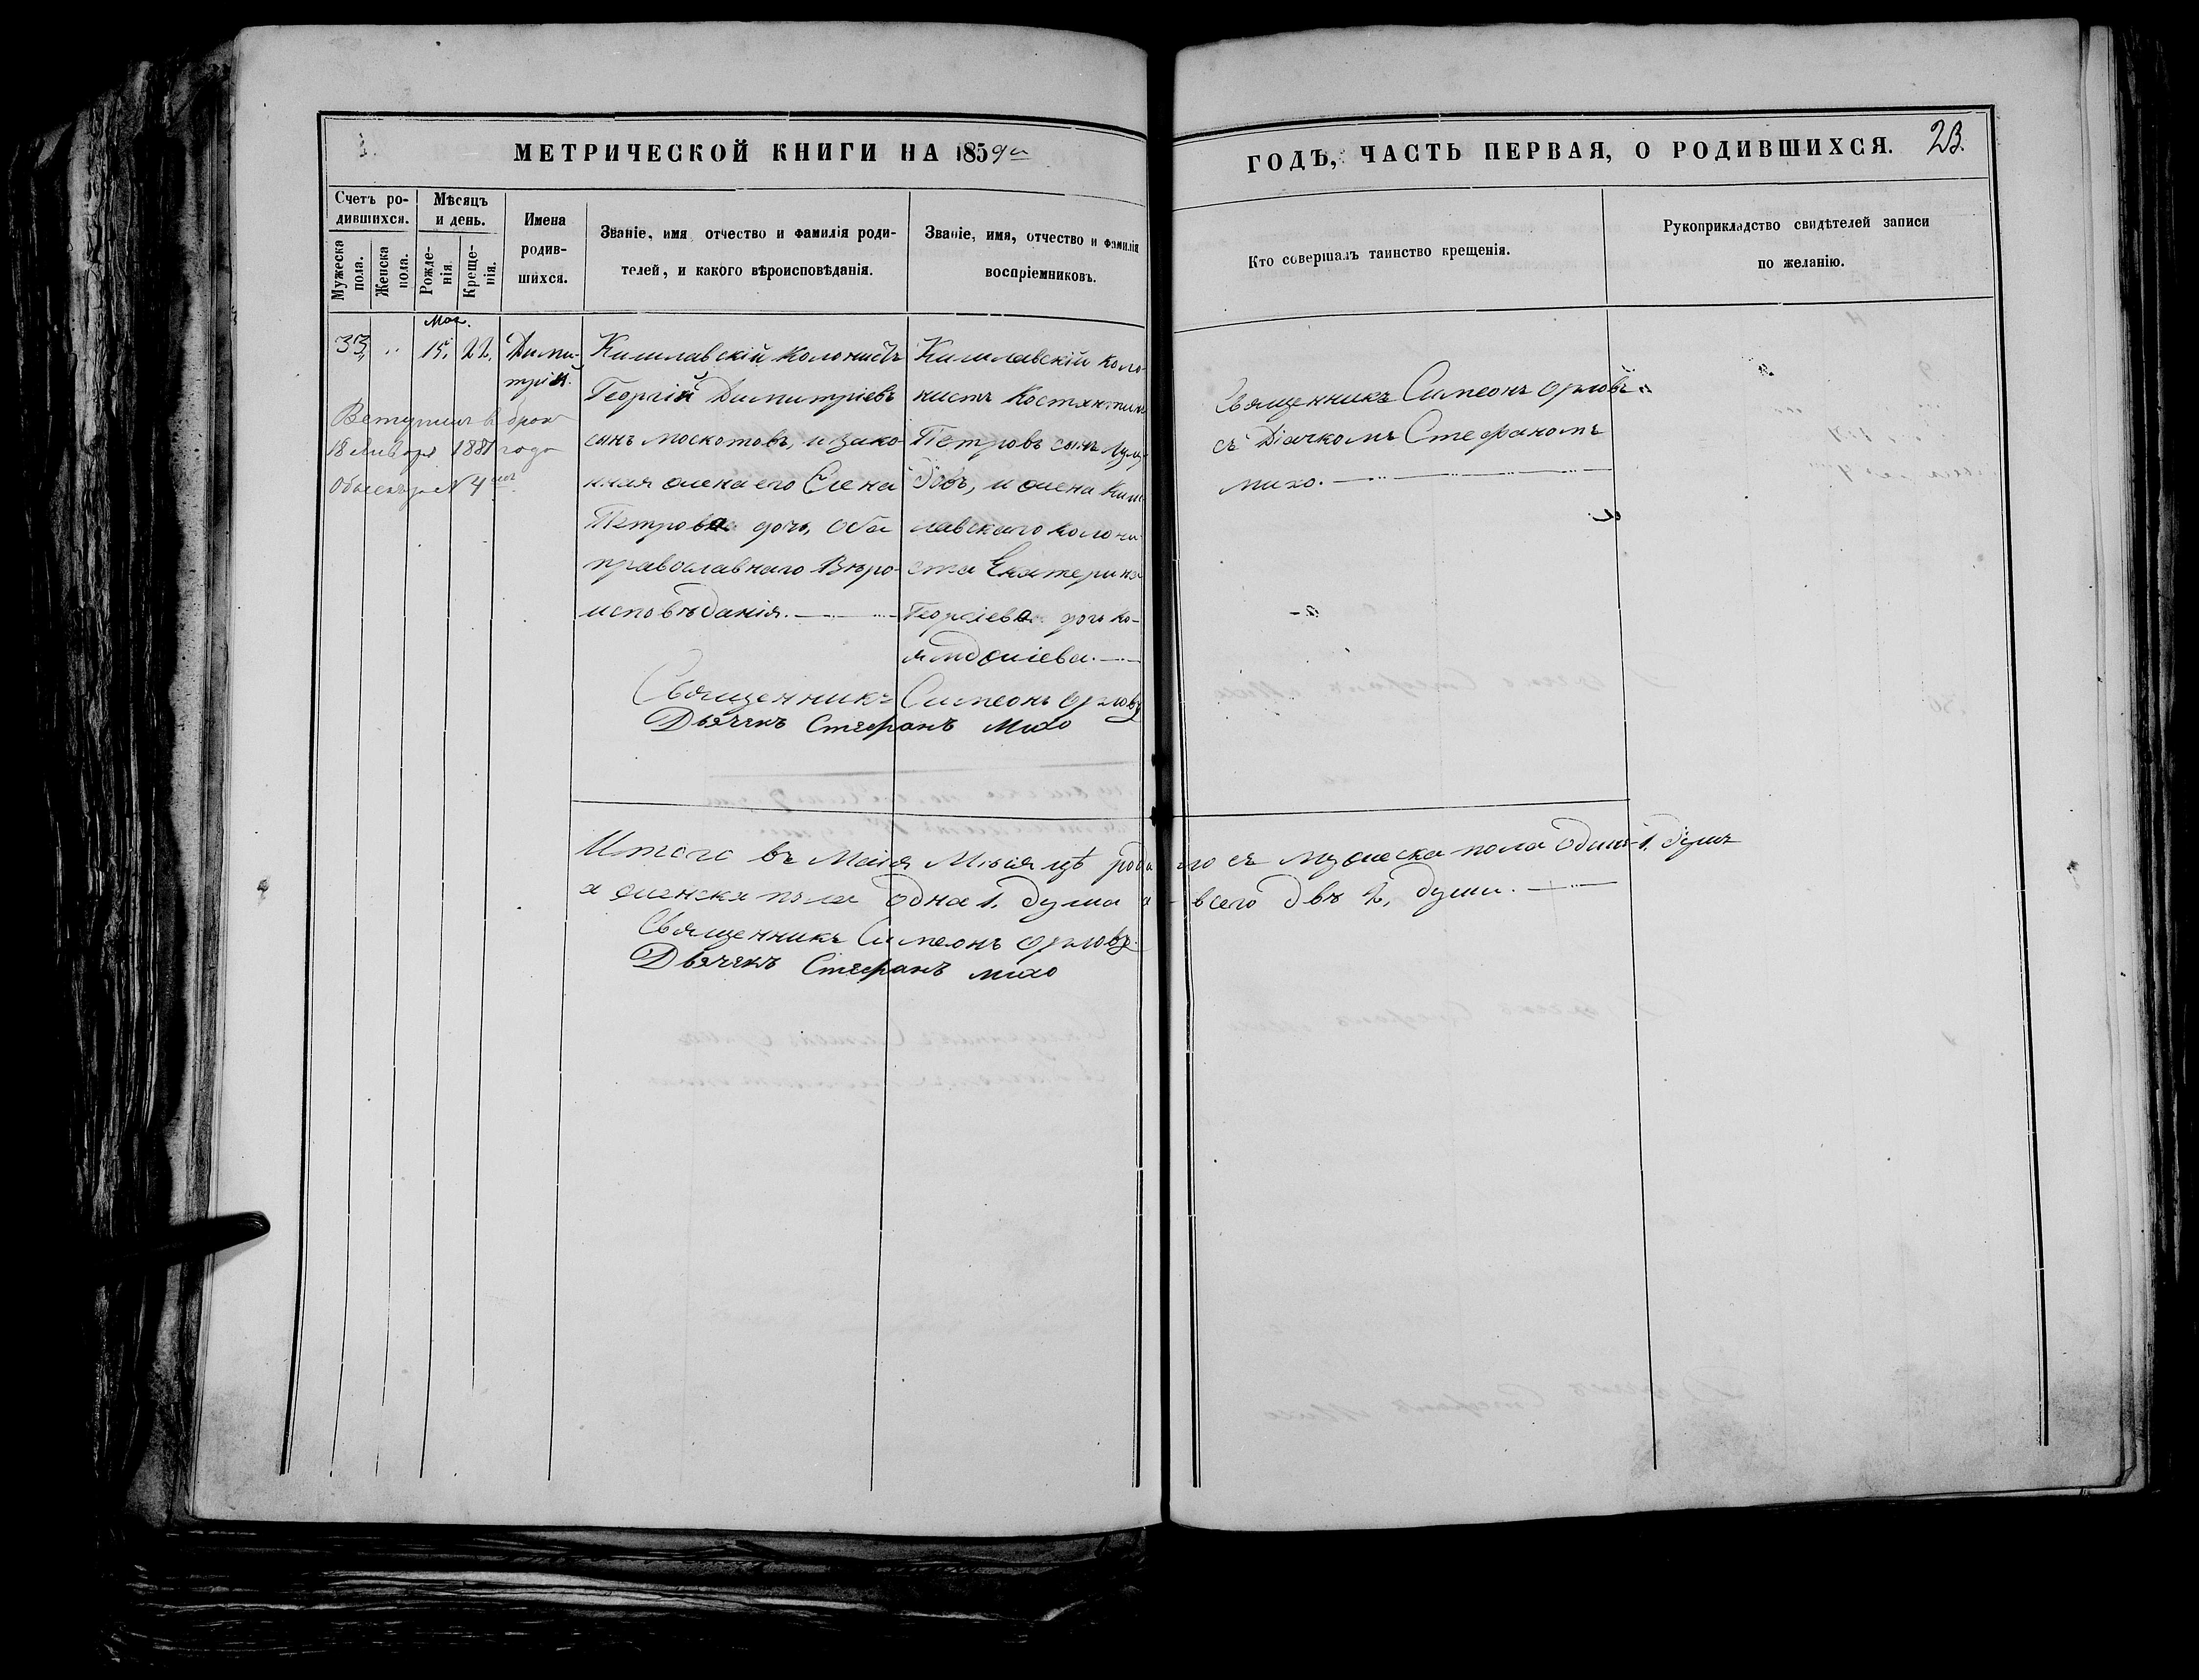 МЕТРИЧЕСКОЙ КНИГИ НА 1859й
ГОДЪ, ЧАСТЬ ПЕРВАЯ, О РОДИВШИХСЯ. 23.
Счетъ ро-
дившихся.
Мужеска пола.
Женска пола.
Мѣсяцъ
и день.
Рожде-
нія.
Креще-
нія.
Имена
родив-
шихся.
Званіе, имя отчество и фамилія роди-
телей, и какого вѣроисповѣданія.
Званіе, имя, отчество и фамилія
воспріемниковъ.
Кто совершалъ таинство крещенія.
Рукоприкладство свидѣтелей записи
по желанію.
Маи.
33, " 15, 22,
Дими-
трій.
Вступилъ в брак
18 Января 1881 года
Обыскъ № 4
Кишлавскій Колонистъ
Георгій Димитріевъ
сынъ москотовъ, и зако-
нная жена его Елена
Петрова дочь, Оба
православнаго Вѣро-
исповѣданія.
Кишлавскій коло-
нистъ Костянтинъ
Петровъ сынъ
и жена Киш-
лавскаго колони-
ста Екатерина
Георгіева дочь
Священникъ Симеонъ Орловъ
Дьячекъ Стефанъ Михо
Священникъ Симеонъ Орловъ
съ Діачкомъ Стефаномъ
михо.
Итого въ Маія Мѣсяцѣ родилося мужеска пола Одинъ 1. душъ
а женска пола Одна 1. душа а всего двѣ 2, души.
Священникъ Симеонъ Орловъ.
Дьячекъ Стефанъ михо